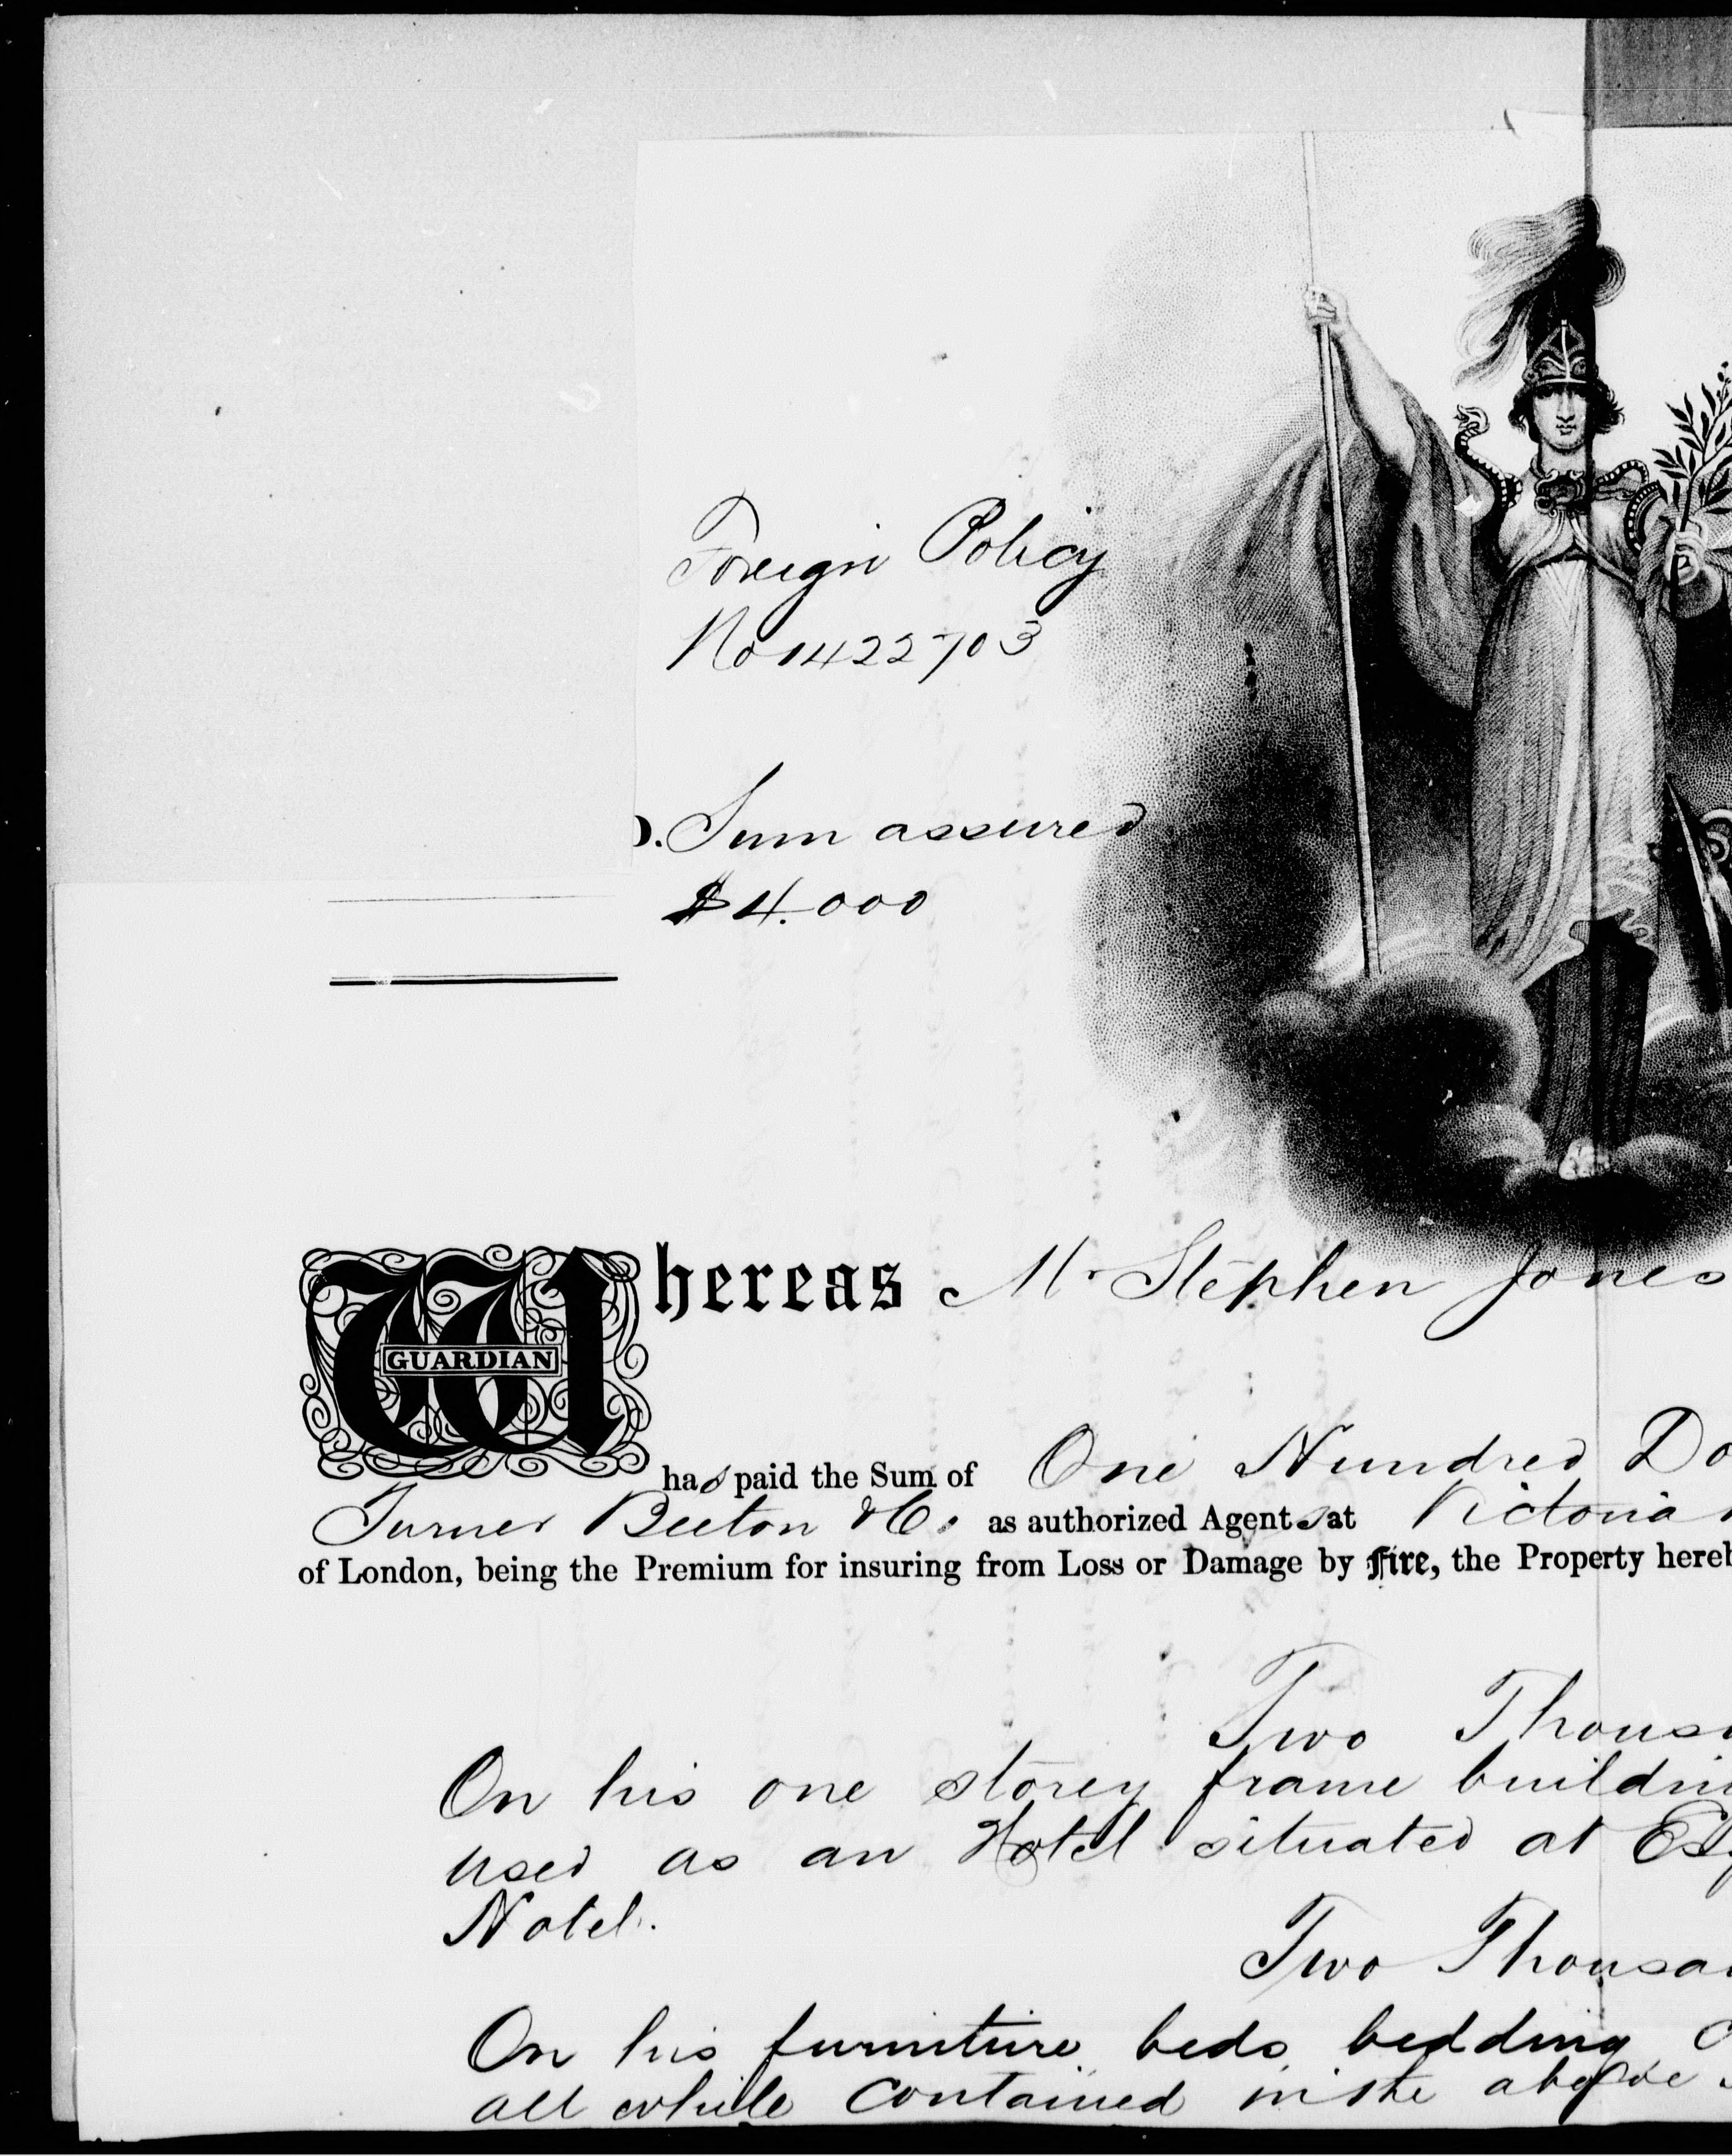 Foreign Policy
No 1422703
Sum assured
$4.000
Whereas Mr Stephen Jones
GUARDIAN
has paid the Sum of One Hundred Do
Turner Beeton & Co. as authorized Agents at Victoria
of London, being the Premium for insuring from Loss or Damage by Fire, the Property hereb
Two Thous
On his one storey frame buildin
used as an Hotel situated at Esq
Hotel.
Two Thousa
On his furniture, beds, bedding
all while contained in the above